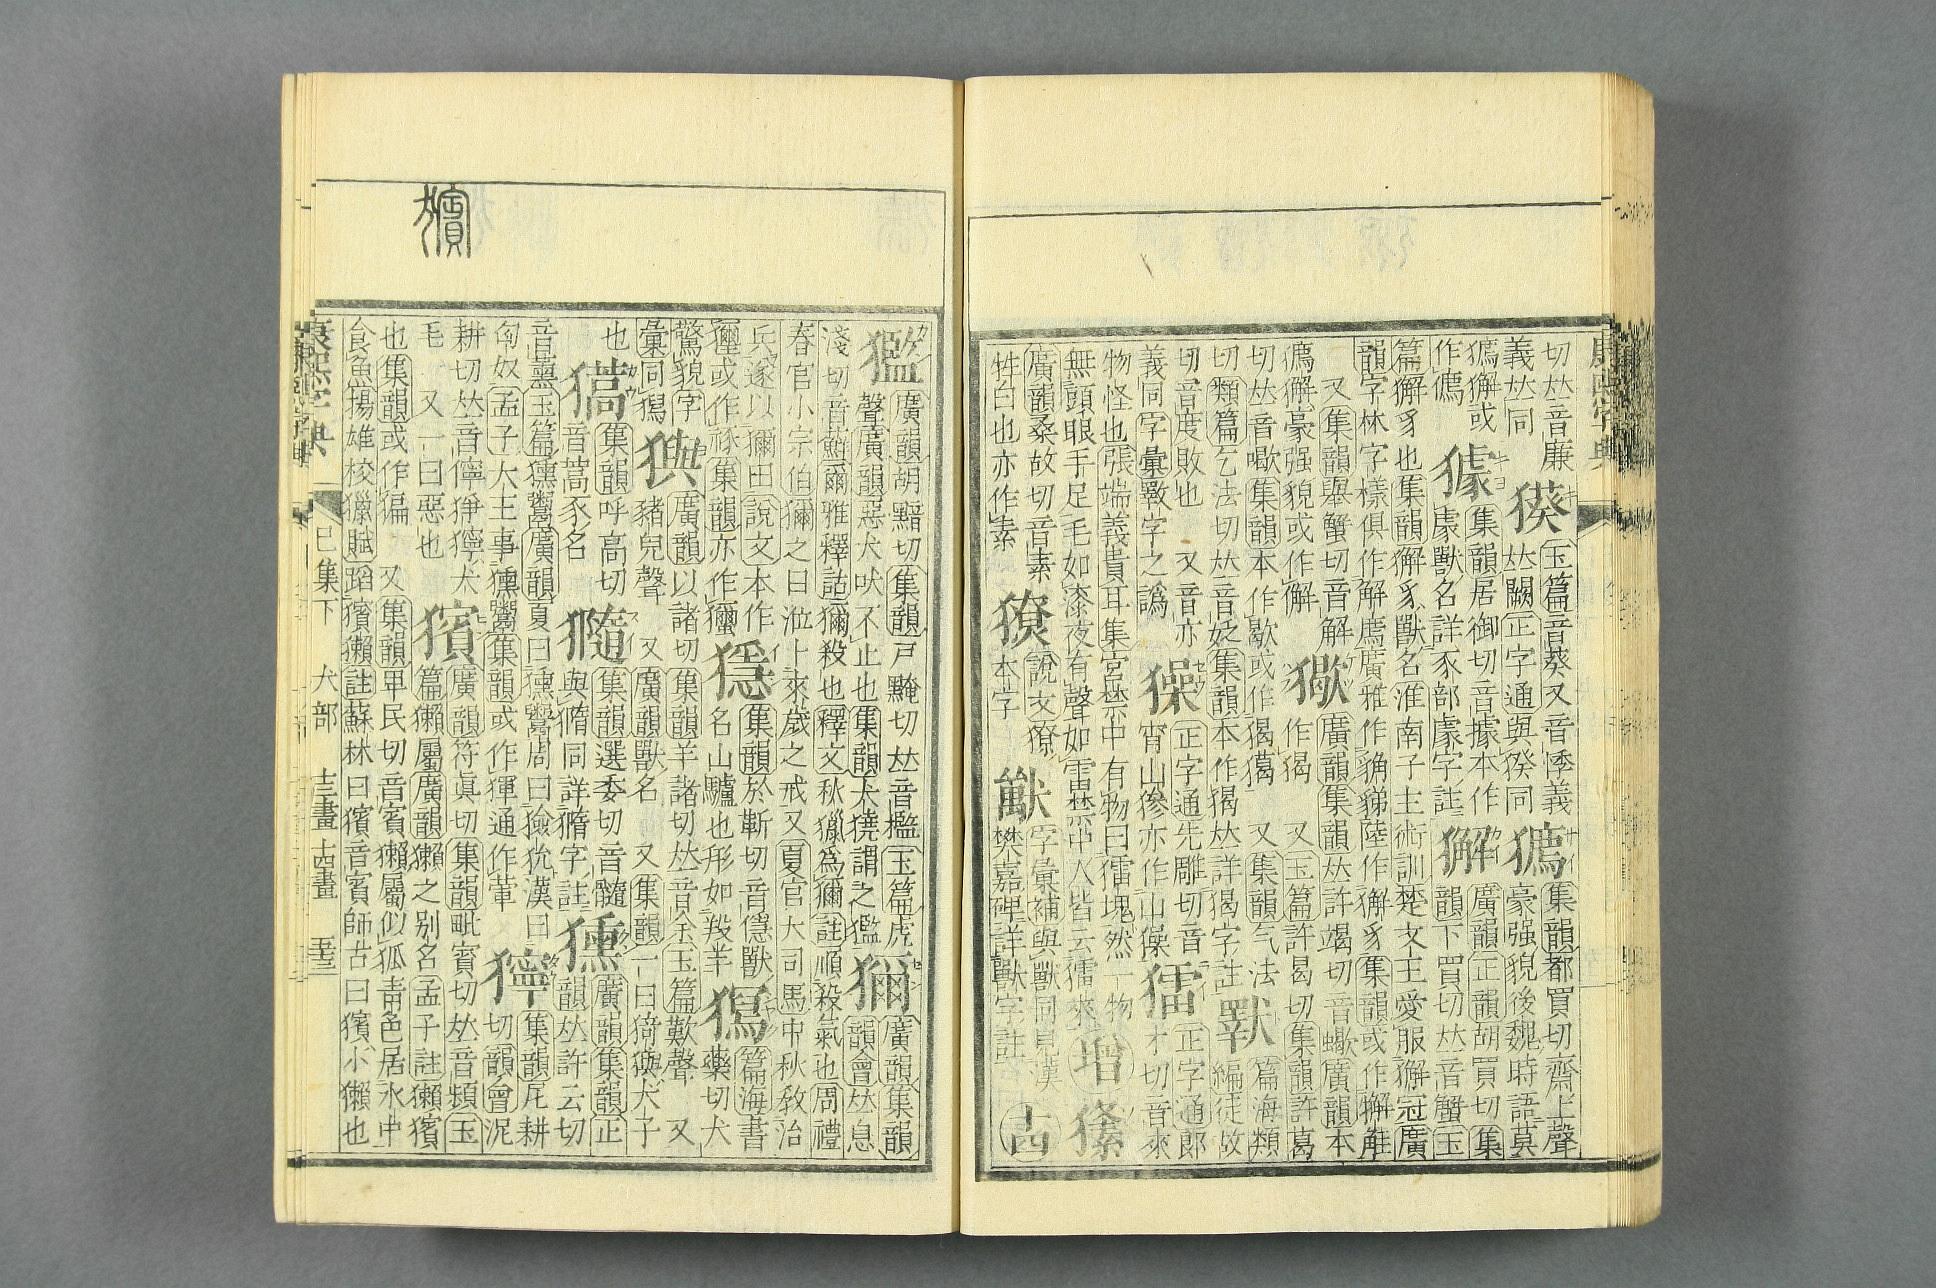 切𠀤音廉
義𠀤同
獩 玉篇音葵又音悸義
𠀤闕正字通與猤同
廌 集韻都買切齋上聲
豪强貌後魏時語莫
獬或作𤢖
㺢 集韻居御切音據本作
豦獸名詳豕部豦字註
獬 廣韻正韻胡買切集
韻下買切𠀤音蟹玉
篇獬豸也集韻獬豸獸名淮南子主術訓楚文王愛服獬冠廣
韻字林字樣俱作解廌廣雅作貈豸陸作獬豸集韻或作獬觟
又集韻舉蟹切音解
獬豪强貌或作解
獥 廣韻集韻𠀤許竭切音蠍廣韻本
作猲 又玉篇許曷切集韻許葛
切𠀤音歇集韻本作歇或作猲獦 又集韻气法
切類篇乞法切𠀤音㛂集韻本作猲𠀤詳猲字註
斁 篇海類編徒故
切音度敗也 又音亦
義同字彙斁字之譌
獟 正字通先雕切音
宵山獠亦作山㺐
獝 正字通郎
才切音來
物怪也張端義貴耳集宮禁中有物曰獝塊然一物
無頭眼手足毛如漆夜有聲如雷禁中人皆云獝來
𤢖
𤢗
廣韻桑故切音素
牲白也亦作素
獠 說文獠
本字
獣 字彙補與獸同見漢
樊嘉碑詳獸字註
十四
㺝 廣韻胡黤切集韻戸黤切𠀤音檻玉篇虎
聲廣韻惡犬吠不止也集韻犬獟謂之㺝
獮 廣韻集韻
韻會𠀤息
淺切音鮮爾雅釋詁獮殺也釋文秋獵爲獮註順殺氣也周禮
春官小宗伯獮之日涖卜來歲之戒又夏官大司馬中秋敎治
兵遂以獮田說文本作
𤣊或作𥙷集韻亦作玁
㺨 集韻於靳切音穩獸
名山驢也形如羖羊
㺷 篇海書
藥切犬
驚貌字
彙同㺷
㺞 廣韻以諸切集韻羊諸切𠀤音余玉篇歎聲 又
豬兒聲 又廣韻獸名 又集韻一曰猗㺞犬子
也
獢 集韻呼高切
音蒿豕名
㺟 集韻選委切音髓
與隋同詳隋字註
獯 廣韻集韻正
韻𠀤許云切
音熏玉篇獯鬻廣韻夏曰獯鬻周曰獫狁漢曰
匈奴孟子大王事獯鬻集韻或作獋通作葷
獰 集韻尼耕
切韻會泥
耕切𠀤音儜猙獰犬
毛 又一曰惡也
獱 廣韻符眞切集韻毗賓切𠀤音頻玉
篇獺屬廣韻獺之別名孟子註獺獱
也集韻或作猵 又集韻甲民切音賓獺屬似狐靑色居水中
食魚揚雄校獵賦蹈獱獺註蘇林曰獱音賓師古曰獱小獺也
康熙字典 巳集下 犬部 十三畫 十四畫